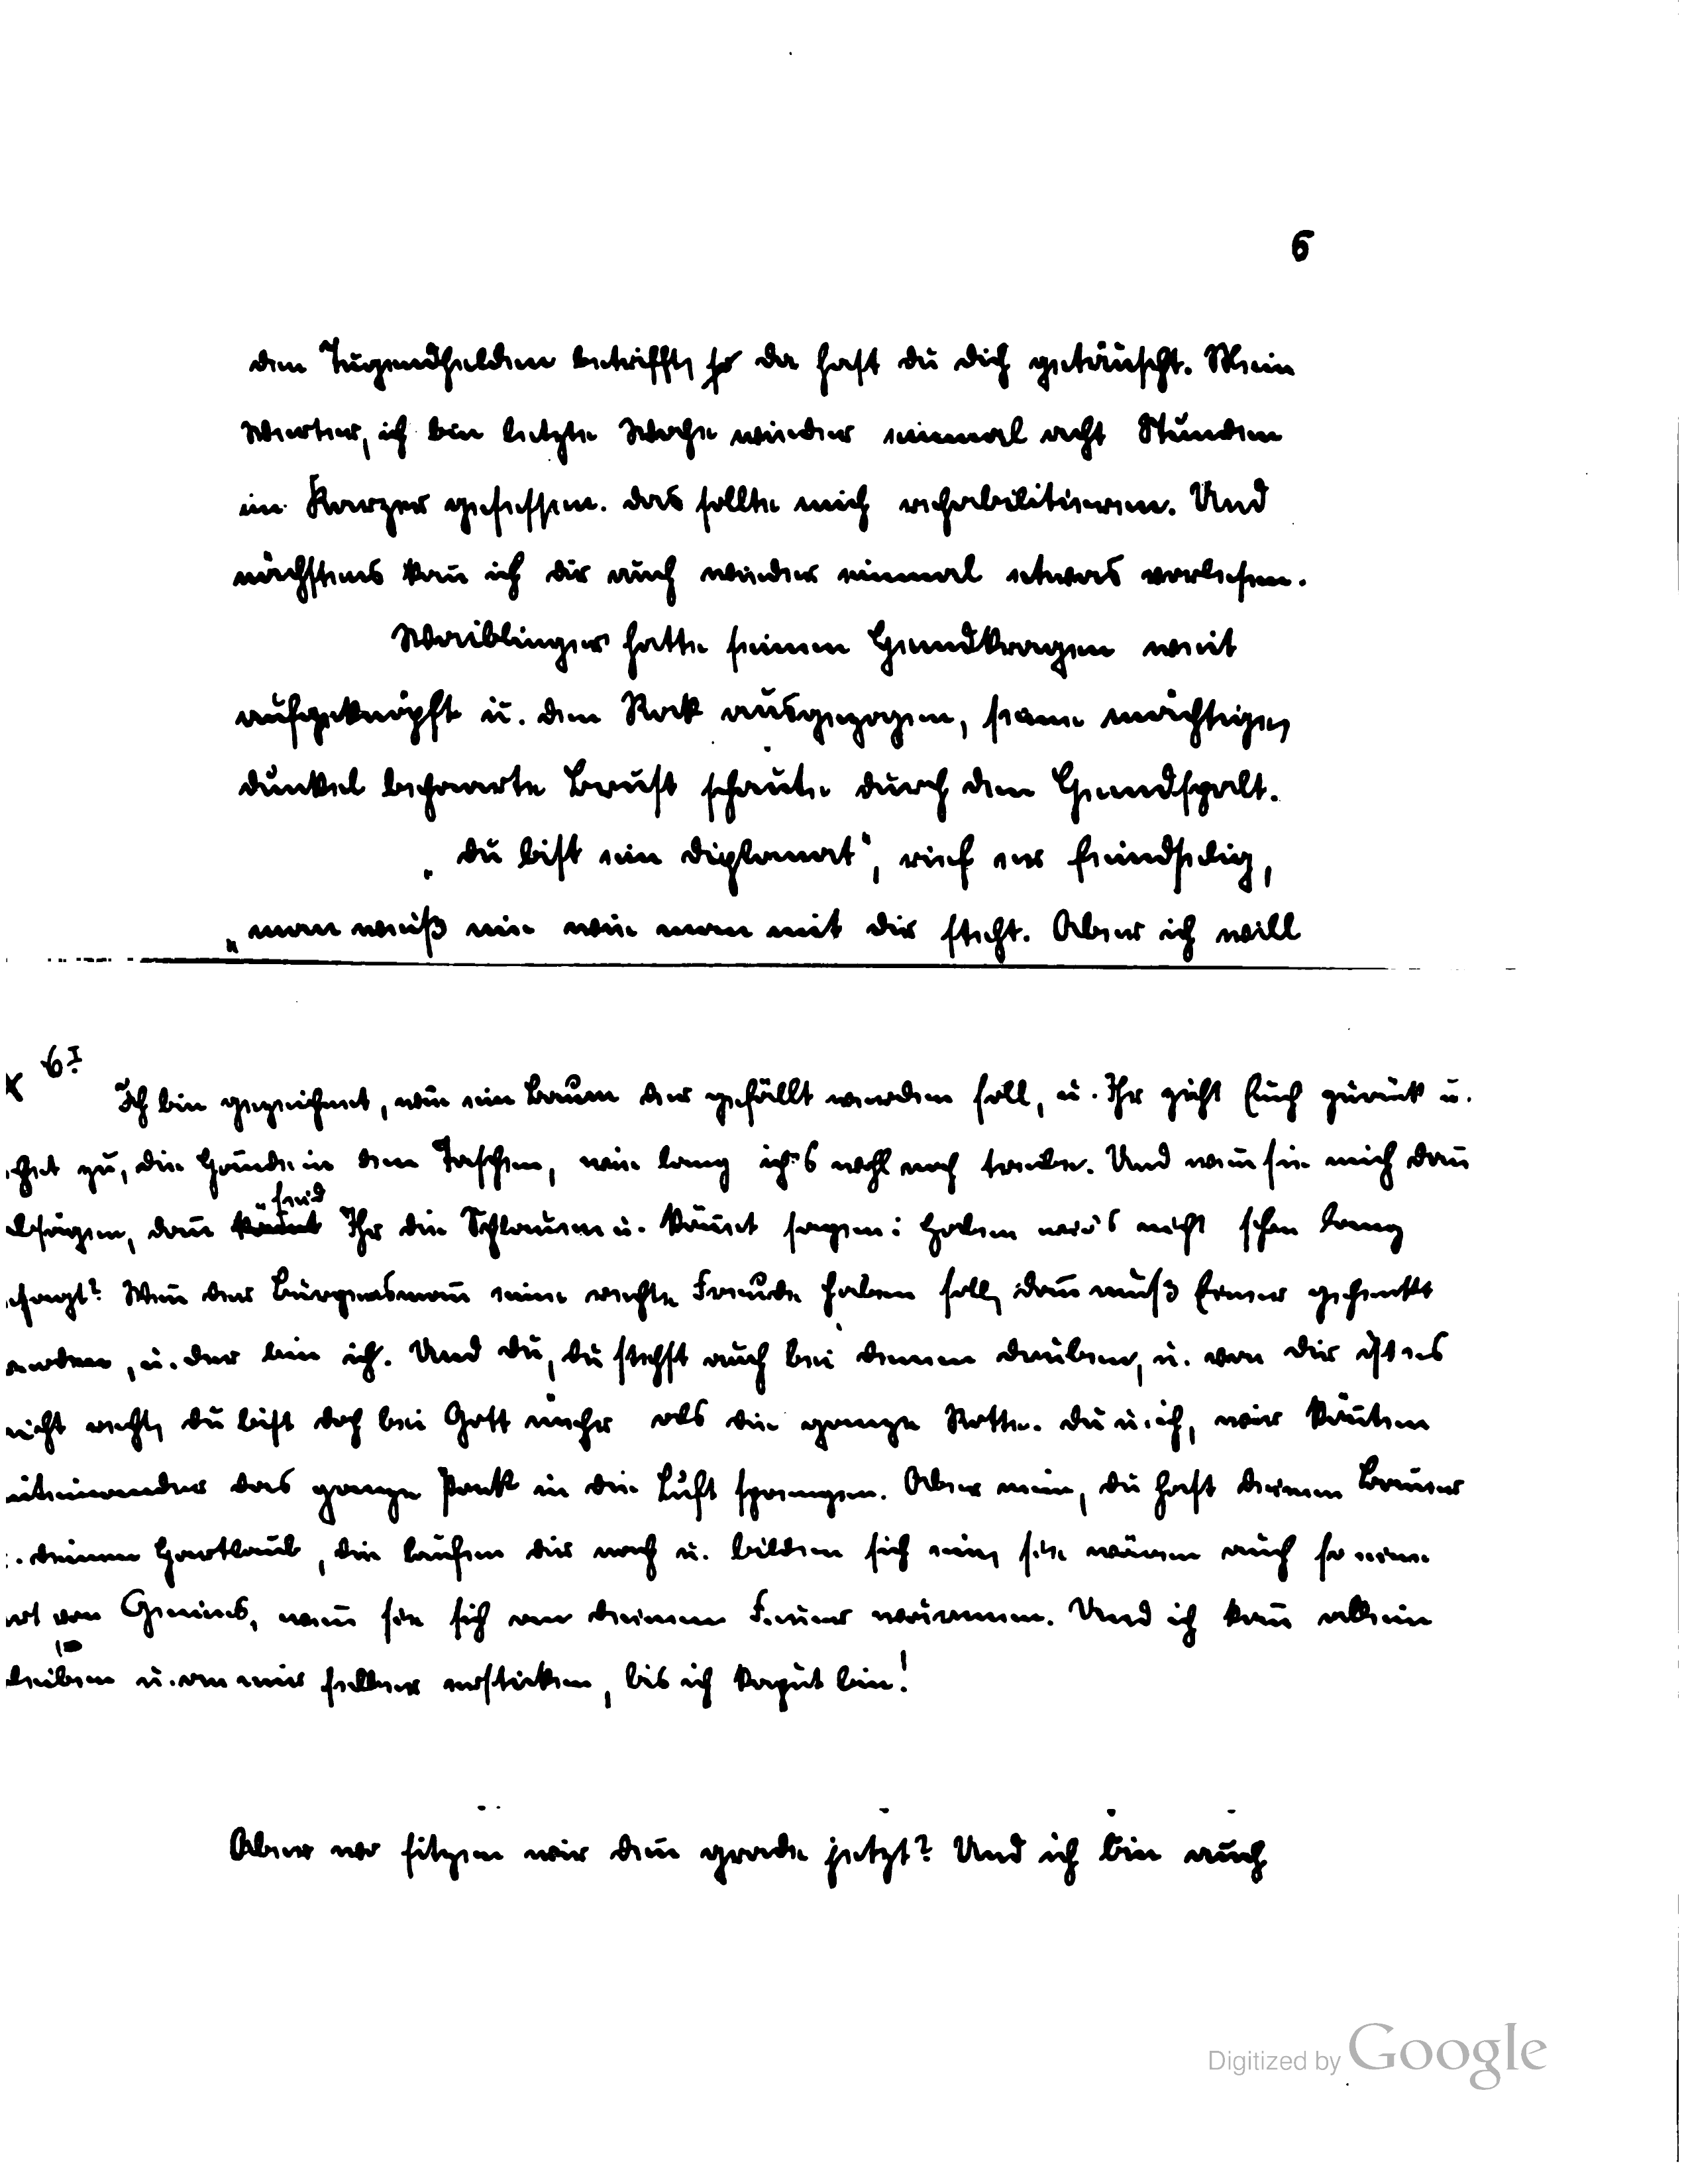 6
den Tugendhelden betrifft, so da hast du dich getäuscht. Mein
Werter, ich bin letzte Woche wieder einmal acht Stunden
im Karzer gesessen. Das sollte mich rehabilitieren. Und
nächstens kan̄ ich dir auch wieder einmal etwas vorlesen.
Waiblinger hatte seinen Hemdkragen weit
aufgeknöpft u. den Rock ausgezogen, seine mächtige,
dunkel behaarte Brust schaute durch den Hemdspalt.
„Du bist ein Diplomat“, rief er feindselig,
„man weiß nie wie man mit dir steht. Aber ich will
x 6 I
Ich bin gezeichnet, wie ein Baum der gefällt werden soll, u. Ihr zieht Euch zurück u.
zu, die Hände in den Taschen, wie lang ich's wohl noch treibe. Und wen̄ sie mich dan̄
seid
dan̄ kön̄t Ihr die Schlauen u. kön̄et sagen: Haben wir's nicht schon lang
Wen̄ der Bürgersman̄ eine rechte Freude haben soll, dan̄ muß Einer gehenkt
u. der bin ich. Und du, du stehst auch bei denen drüben, u. von dir ist es
nicht recht, du bist doch bei Gott mehr als die ganze Rotte. Du u. ich, wir kön̄ten
miteinander das ganze Pack in die Luft sprengen. Aber nein, du hast deinen Bauer
u. deinen Hartlaub, die laufen dir nach u. bilden sich ein, sie wären auch so eine
Art von Genies, wen̄ sie sich an deinem Feuer wärmen. Und ich kan̄ allein
bleiben u. an mir selber ersticken, bis ich kaput bin!
Aber wo sitzen wir den̄ grade jetzt? Und ich bin auch
Digitized by Google